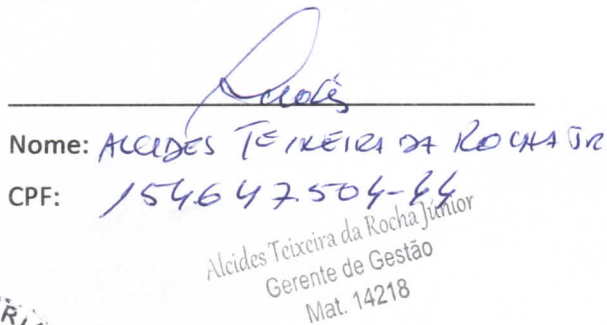 Nome: ALCIDES TEIXEIRA DA ROCHA JR
CPF: 154647.504-44
Alcides Teixeira da Rocha Júnior
Gerente de Gestão
Mat. 14218